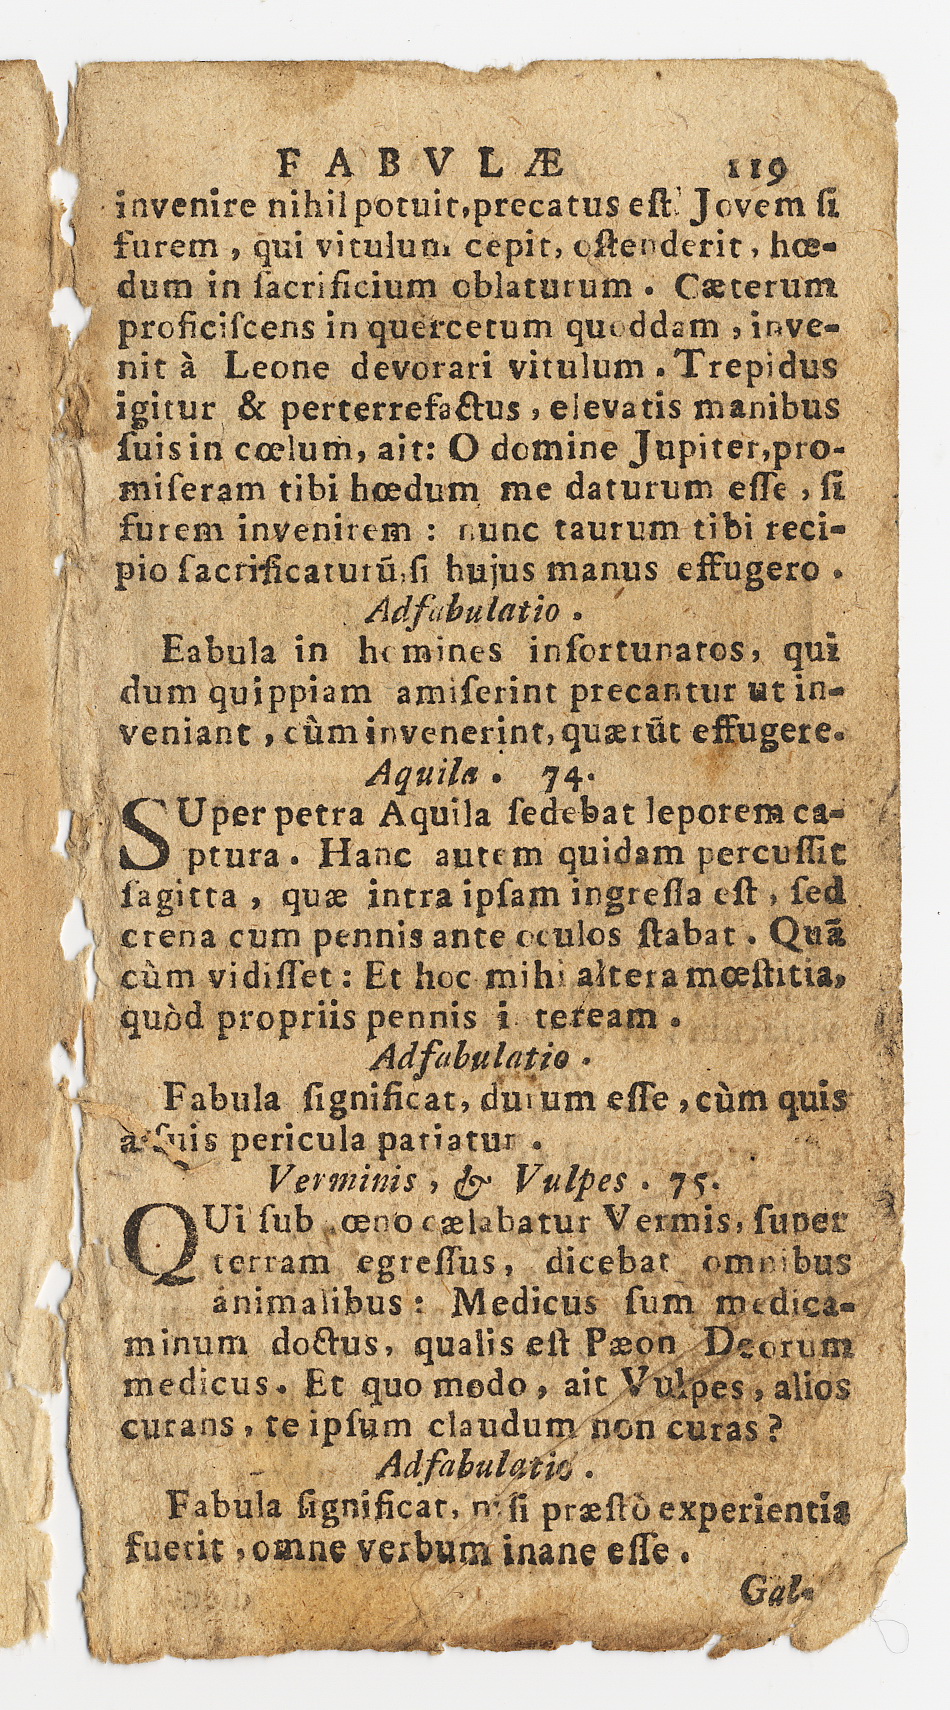 FABVLÆ 119
invenire nihil potuit, precatus est Jovem si
furem, qui vitulum cepit, ostenderit, hœ-
dum in sacrificium oblaturum. Cæterum
proficiscens in quercetum quoddam, inve-
nit à Leone devorari vitulum. Trepidus
igitur & perterrefactus, elevatis manibus
suis in cœlum, ait: O domine Jupiter, pro-
miseram tibi hœdum me daturum esse, si
furem invenirem: nunc taurum tibi reci-
pio sacrificaturū, si hujus manus effugero.
Adfabulatio.
Eabula in homines infortunatos, qui
dum quippiam amiserint precantur ut in-
veniant, cùm invenerint, quærūt effugere.
Aquila. 74.
SUper petra Aquila sedebat leporem ca-
ptura. Hanc autem quidam percussit
sagitta, quæ intra ipsam ingressa est, sed
crena cum pennis ante oculos stabat. Quā
cùm vidisset: Et hoc mihi altera mœstitia,
quòd propriis pennis i teream.
Adfabulatio.
Fabula significat, durum esse, cùm quis
a suis pericula patiatur.
Verminis, & Vulpes. 75.
QUi sub cœno cælabatur Vermis, super
terram egressus, dicebat omnibus
animalibus: Medicus sum medica-
minum doctus, qualis est Pæon Deorum
medicus. Et quo modo, ait Vulpes, alios
curans, te ipsum claudum non curas?
Adfabulatio.
Fabula significat, nisi præstò experientia
fuerit, omne verbum inane esse.
Gal-